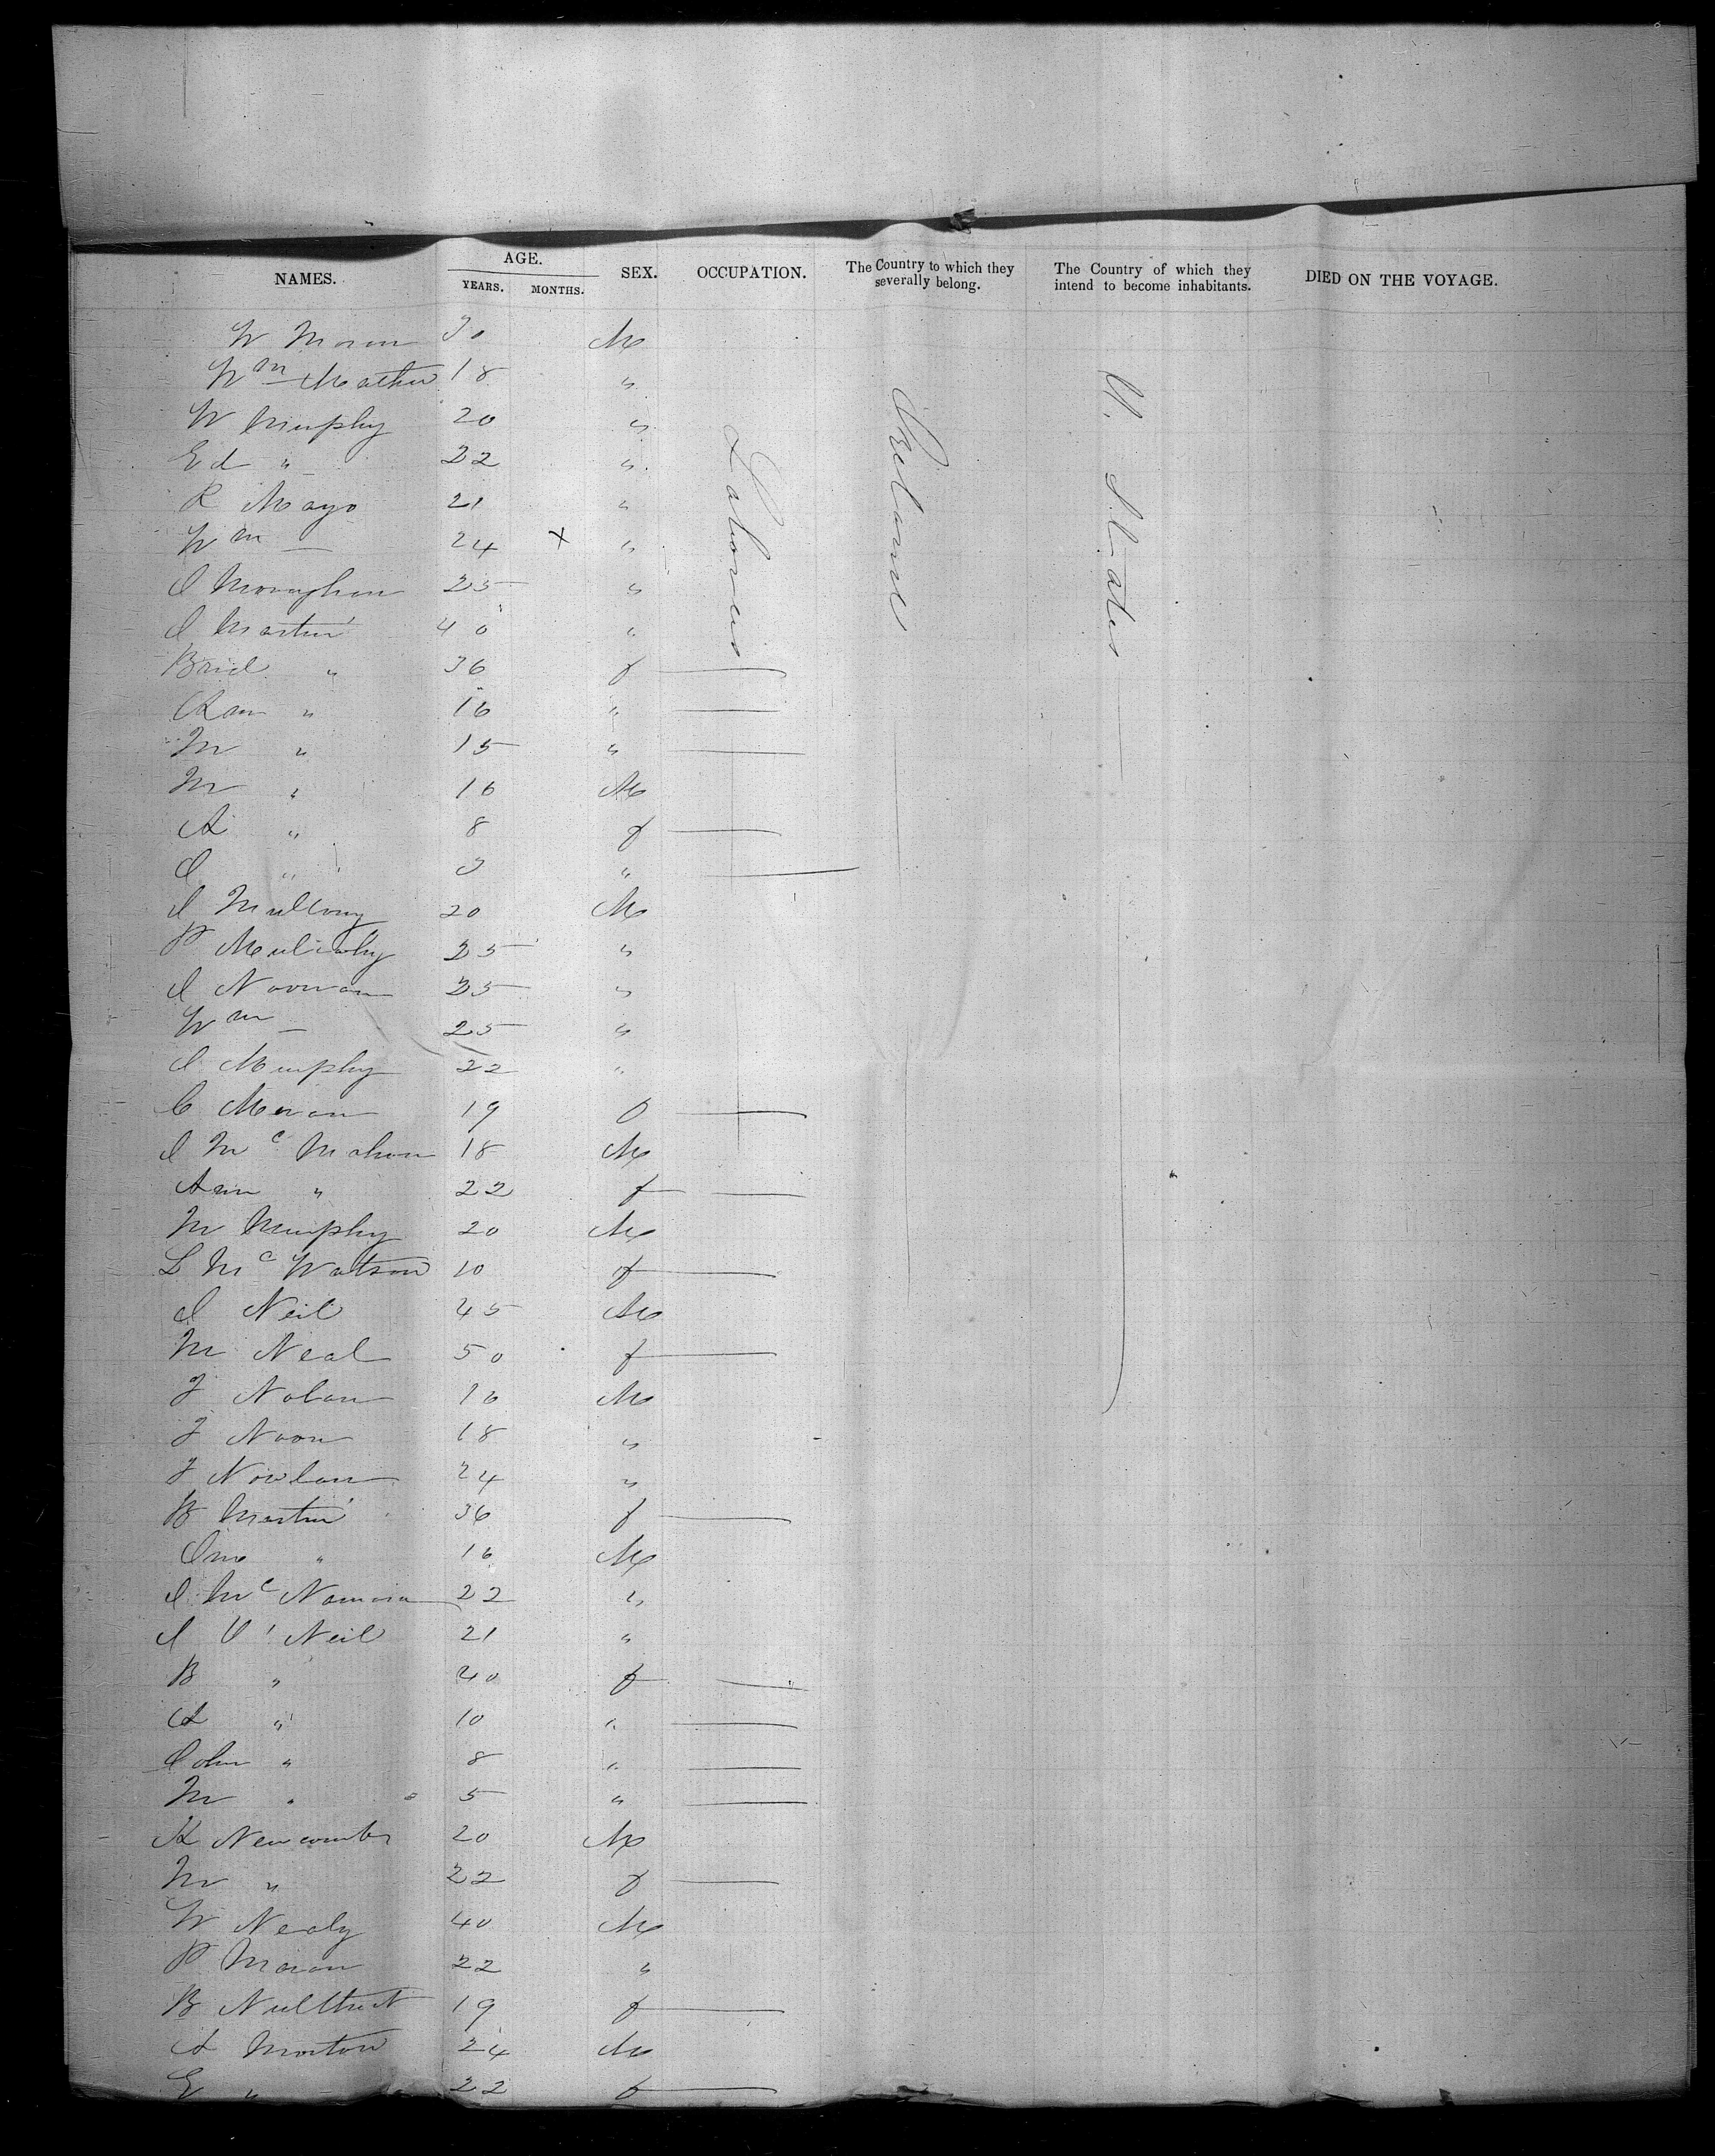 NAMES. AGE. YEARS. MONTHS. SEX. OCCUPATION. The Country to which they severally belong. The Country of which they intend to become inhabitants. DIED ON THE VOYAGE.
Laborers
Ireland
U. States
W Moran 30 M
Wm 18 "
W Murphy 20 "
Ed " 22 "
R Mayo 21 "
Wm — 24 X "
J Monaghan 25 "
J Martin 40 "
Brid " 36 f
Ann " 16 "
M " 15 "
M " 16 M
A " 8 f
J " 3 "
J 20 M
P 25 "
J Noonan 25 "
Wm — 25 "
J Murphy 22 "
C Moran 19
J Mc Mahon 18 M
Ann " 22 f
M Murphy 20 M
L Mc Watson 10 f
J Neil 45 M
M Neal 50 f
J Nolan 16 M
J Noon 18 "
J Nowlan 24 "
B Martin 36 f
Jno " 16 M
J Mc Namara 22 "
J O' Neil 21 "
B " 40 f
A " 10 "
John " 8 "
M " 5 "
K Newcomber 20 M
M " 22 f
W Nealy 40 M
P Moran 22 "
B 19 f
A Morton 24 M
E " 22 f